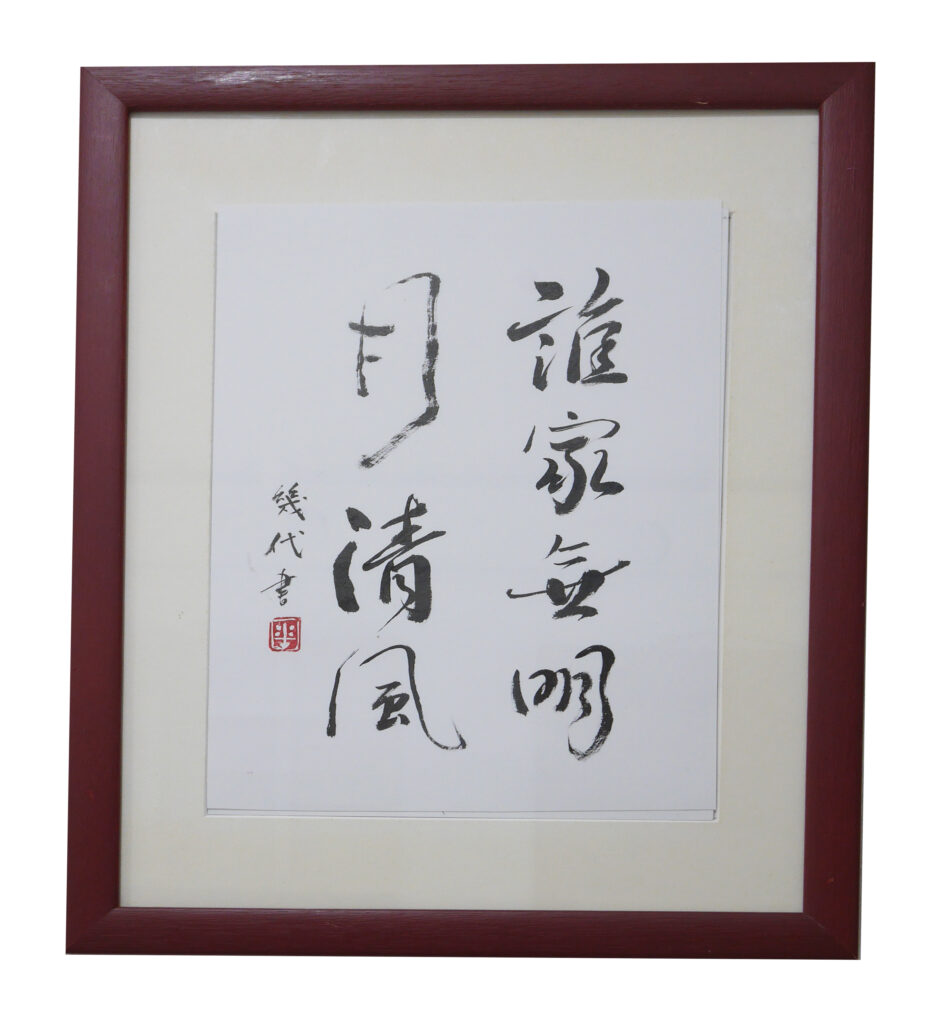 誰家無明
月清風
幾代書